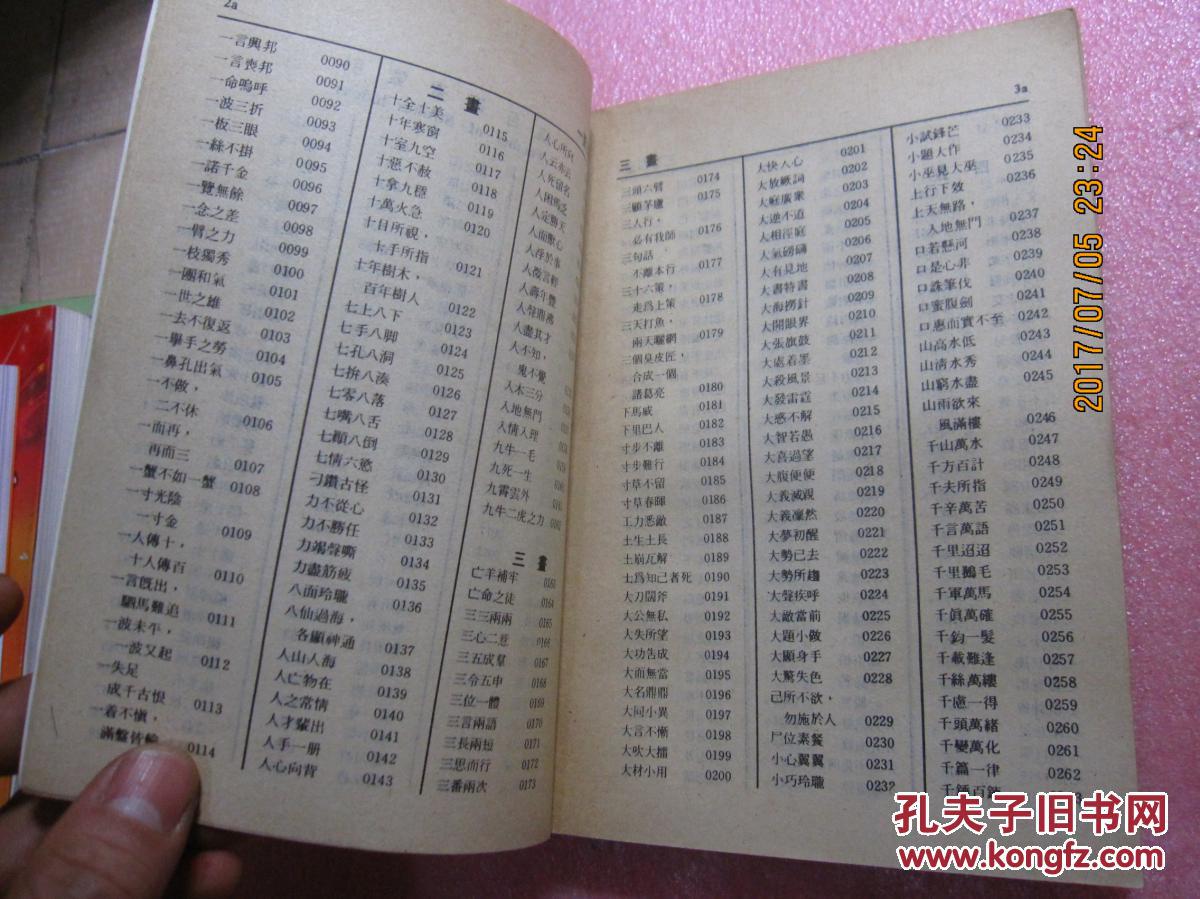 2a
一言興邦 0090
一言喪邦 0091
一命嗚呼 0092
一波三折 0093
一板三眼 0094
一絲不掛 0095
一諾千金 0096
一覽無餘 0097
一念之差 0098
一臂之力 0099
一枝獨秀 0100
一團和氣 0101
一世之雄 0102
一去不復返 0103
一舉手之勞 0104
一鼻孔出氣 0105
一不做，
二不休 0106
一而再，
再而三 0107
一蟹不如一蟹 0108
一寸光陰
一寸金 0109
一人傳十，
十人傳百 0110
一言既出，
駟馬難追 0111
一波未平，
一波又起 0112
一失足
成千古恨 0113
一着不愼，
滿盤皆輸 0114
二畫
十全十美 0115
十年寒窗 0116
十室九空 0117
十惡不赦 0118
十拿九穩 0119
十萬火急 0120
十目所視，
十手所指 0121
十年樹木，
百年樹人 0122
七上八下 0123
七手八脚 0124
七孔八洞 0125
七拚八湊 0126
七零八落 0127
七嘴八舌 0128
七顚八倒 0129
七情六慾 0130
刁鑽古怪 0131
力不從心 0132
力不勝任 0133
力竭聲嘶 0134
力盡筋疲 0135
八面玲瓏 0136
八仙過海，
各顯神通 0137
人山人海 0138
人亡物在 0139
人之常情 0140
人才輩出 0141
人手一册 0142
人心向背 0143
人心所向
人云亦云
人死留名
人困馬乏
人定勝天
人面獸心
人浮於事
人微言輕
人壽年豐
人聲鼎沸
人盡其才
人不知，
鬼不覺
入木三分
入地無門
入情入理
九牛一毛
九死一生
九霄雲外
九牛二虎之力
三畫
亡羊補牢 0163
亡命之徒 0164
三三兩兩 0165
三心二意 0166
三五成羣 0167
三令五申 0168
三位一體 0169
三言兩語 0170
三長兩短 0171
三思而行 0172
三番兩次 0173
3a
三畫
三頭六臂 0174
三顧茅廬 0175
三人行，
必有我師 0176
三句話
不離本行 0177
三十六策，
走爲上策 0178
三天打魚，
兩天曬網 0179
三個臭皮匠，
合成一個
諸葛亮 0180
下馬威 0181
下里巴人 0182
寸步不離 0183
寸步難行 0184
寸草不留 0185
寸草春暉 0186
工力悉敵 0187
土生土長 0188
土崩瓦解 0189
士爲知己者死 0190
大刀闊斧 0191
大公無私 0192
大失所望 0193
大功吿成 0194
大而無當 0195
大名鼎鼎 0196
大同小異 0197
大言不慚 0198
大吹大擂 0199
大材小用 0200
大快人心 0201
大放厥詞 0202
大庭廣衆 0203
大逆不道 0204
大相徑庭 0205
大氣磅礴 0206
大有見地 0207
大書特書 0208
大海撈針 0209
大開眼界 0210
大張旗鼓 0211
大處着墨 0212
大殺風景 0213
大發雷霆 0214
大惑不解 0215
大智若愚 0216
大喜過望 0217
大腹便便 0218
大義滅親 0219
大義凜然 0220
大夢初醒 0221
大勢已去 0222
大勢所趨 0223
大聲疾呼 0224
大敵當前 0225
大題小做 0226
大顯身手 0227
大驚失色 0228
己所不欲，
勿施於人 0229
尸位素餐 0230
小心翼翼 0231
小巧玲瓏 0232
小試鋒芒 0233
小題大作 0234
小巫見大巫 0235
上行下效 0236
上天無路，
入地無門 0237
口若懸河 0238
口是心非 0239
口誅筆伐 0240
口蜜腹劍 0241
口惠而實不至 0242
山高水低 0243
山淸水秀 0244
山窮水盡 0245
山雨欲來
風滿樓 0246
千山萬水 0247
千方百計 0248
千夫所指 0249
千辛萬苦 0250
千言萬語 0251
千里迢迢 0252
千里鵝毛 0253
千軍萬馬 0254
千眞萬確 0255
千鈞一髮 0256
千載難逢 0257
千絲萬縷 0258
千慮一得 0259
千頭萬緖 0260
千變萬化 0261
千篇一律 0262
千錘百鍊
2017/07/05 23:24
孔夫子旧书网
www.kongfz.com